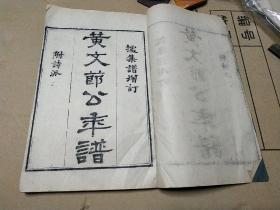 據集譜增訂
黃文節公年譜
附詩派